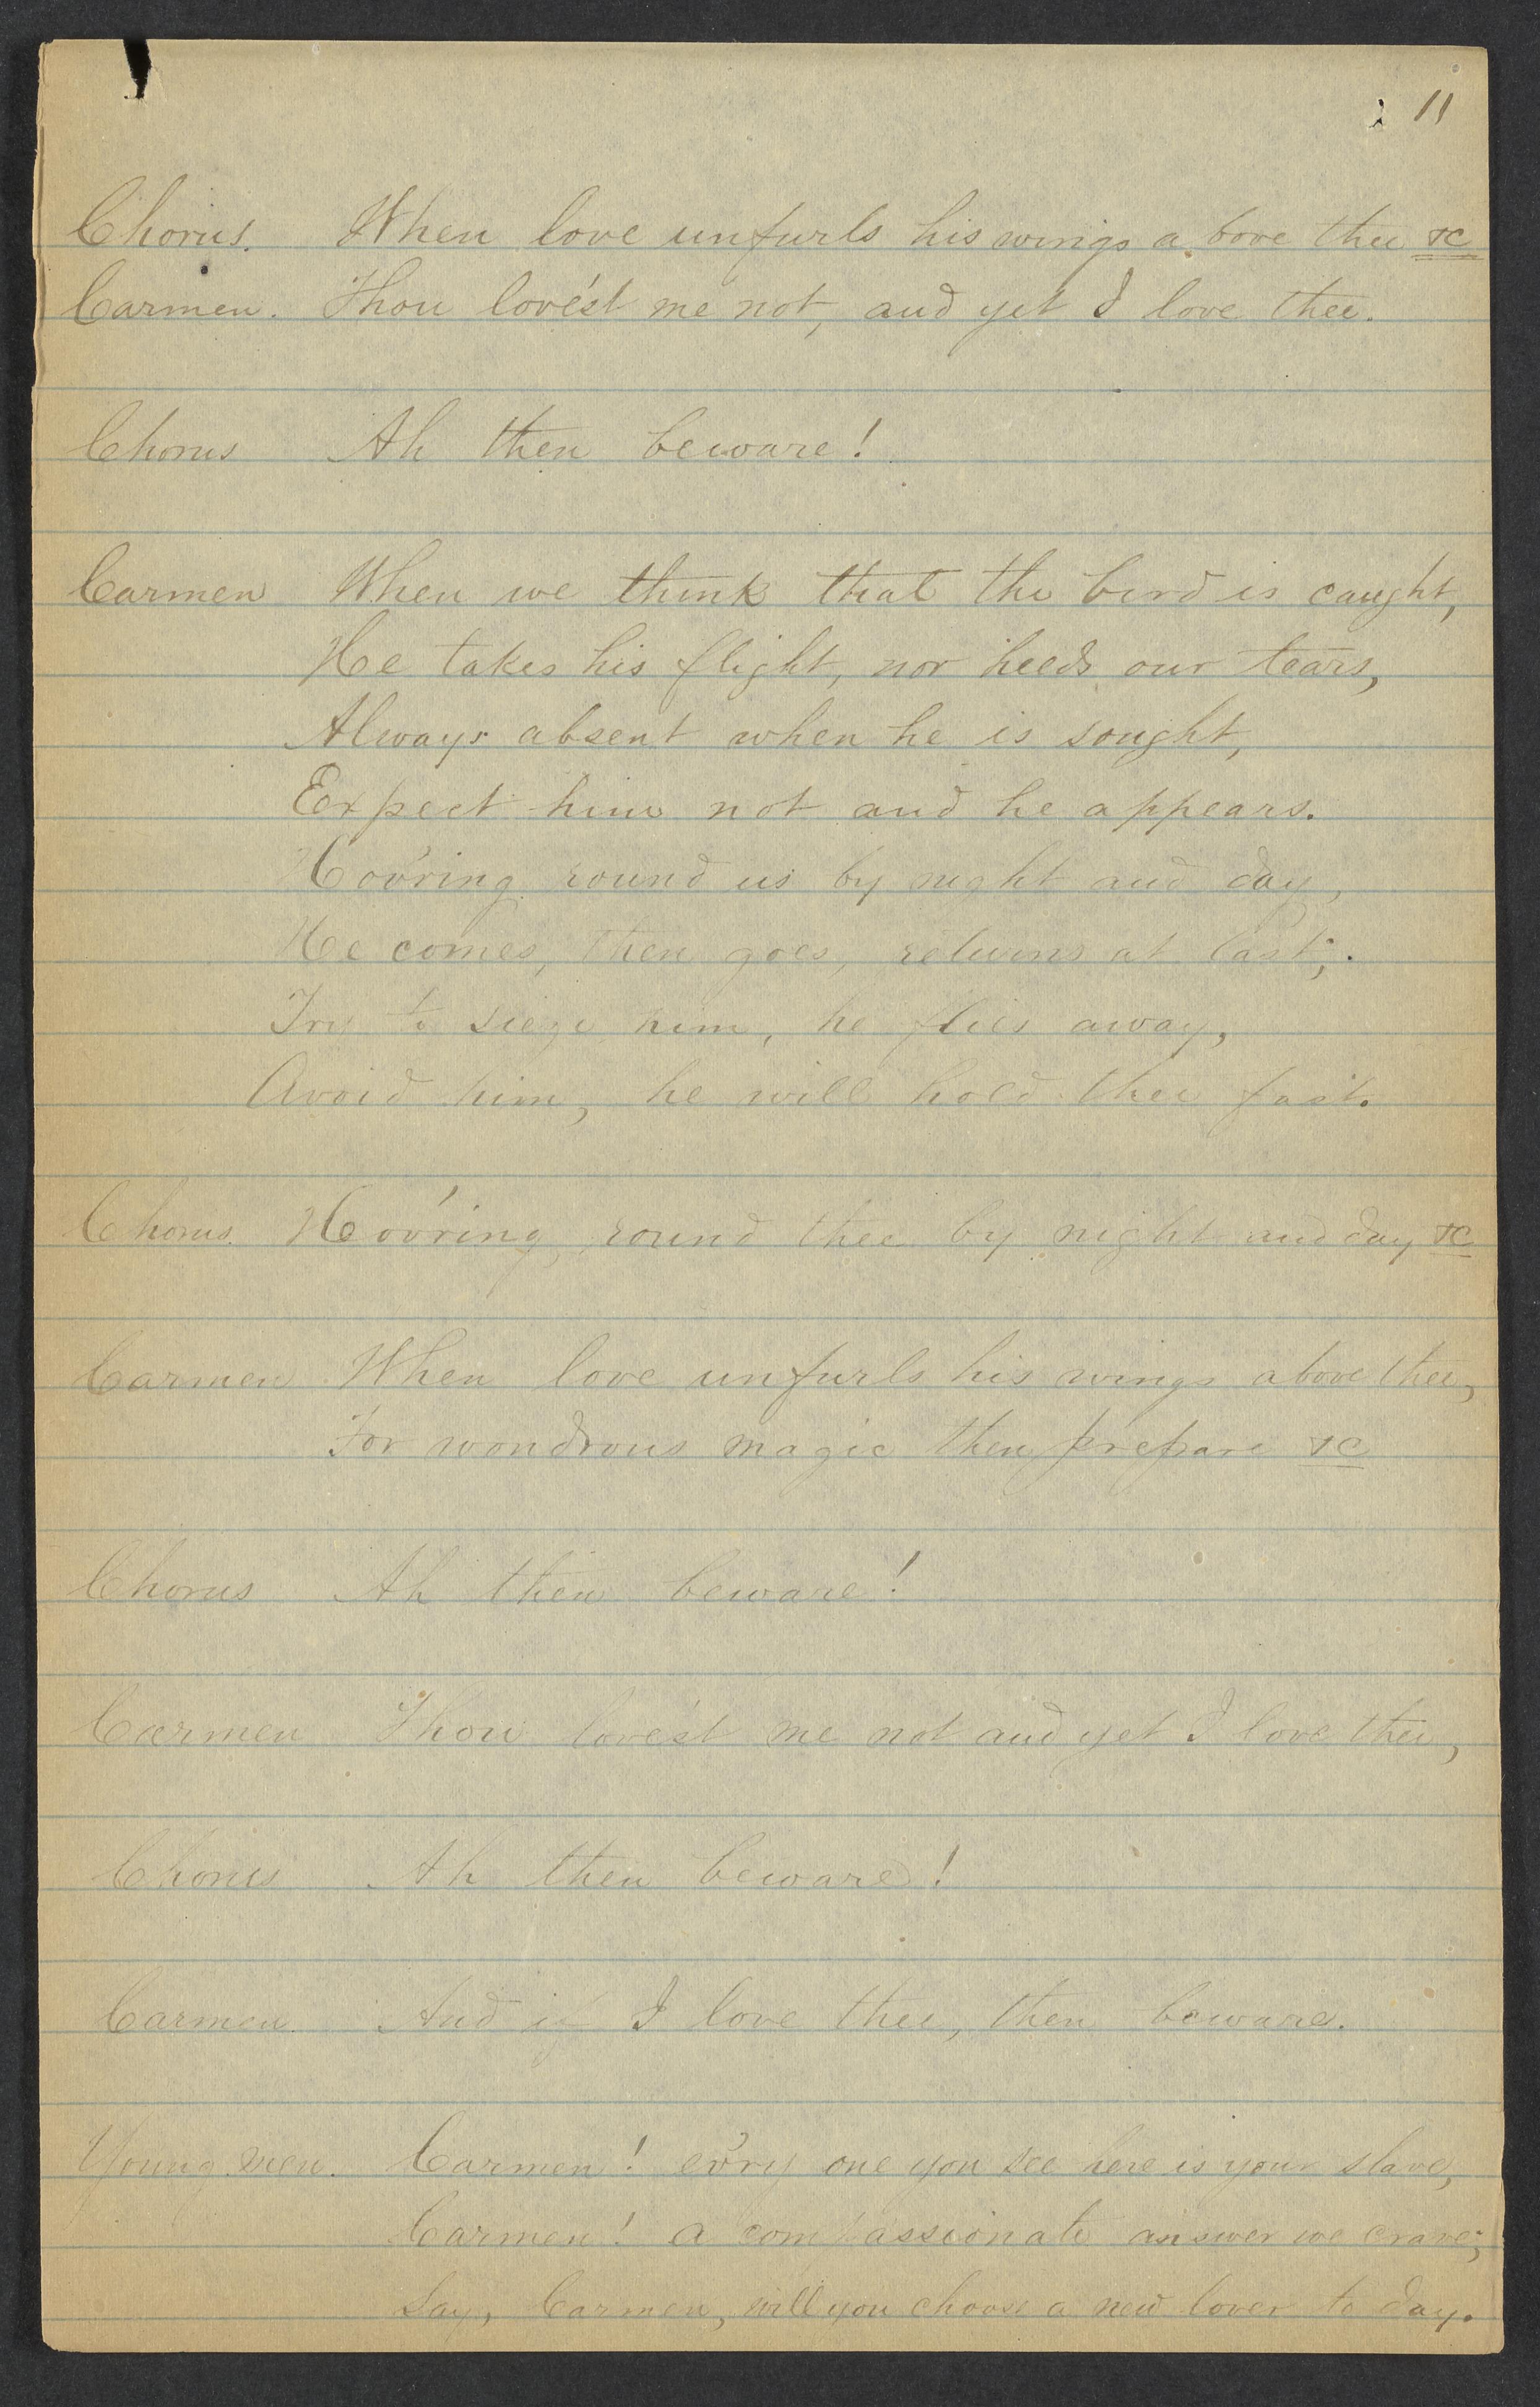 11
Chorus. When love unfurls his wings above thee &c
Carmen. Thou lovés't me not, and yet I love thee.
Chorus Ah then beware!
Carmen When we think that the bird is caught,
He takes his flight, nor heeds our tears,
Always absent when he is sought,
Expect him not and he appears.
Hov'ring round us by night and day,
He comes, then goes, returns at last;.
Try to sieze him, he flies away,
Avoid him, he will hold thee fast.
Chorus. Hov'ring round thee by night and day &c
Carmen When love unfurls his wings above thee,
For wondrous magic then prepare &c
Chorus Ah then beware!
Carmen Thou lovés't me not and yet I love thee,
Chorus Ah then beware!
Carmen. And if I love thee, then beware.
Young men. Carmen! ev'ry one you see here is your slave,
Carmen! a compassionate answer we crave;
Say, Carmen, will you choose a new lover to day.